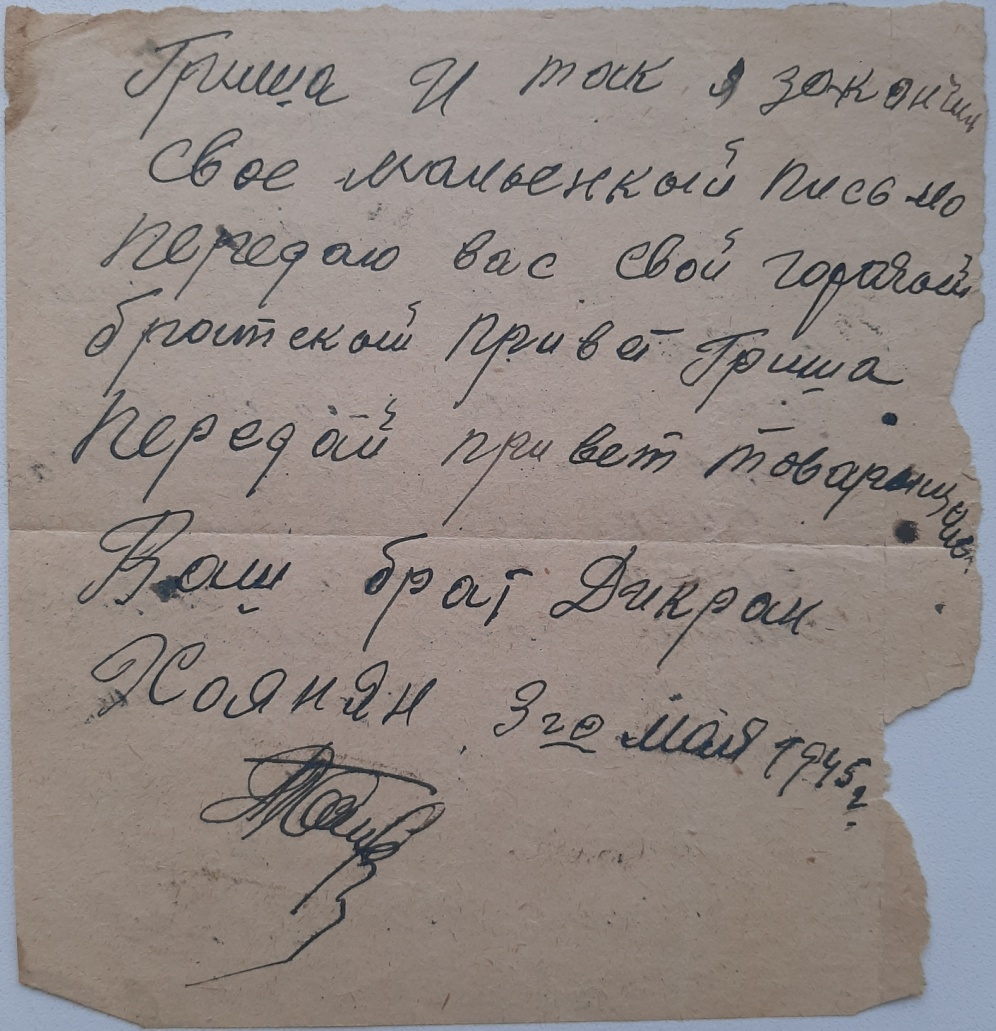 Гриша И так я закончил
свое маленкый письмо
передаю вас свой горячый
братскый привет Гриша
Передай привет товарищам.
Ваш брат Дикран
Хоянян 3го мая 1945г.